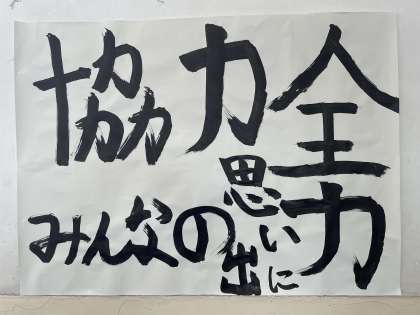 協力
全力
みんなの
思い
出に